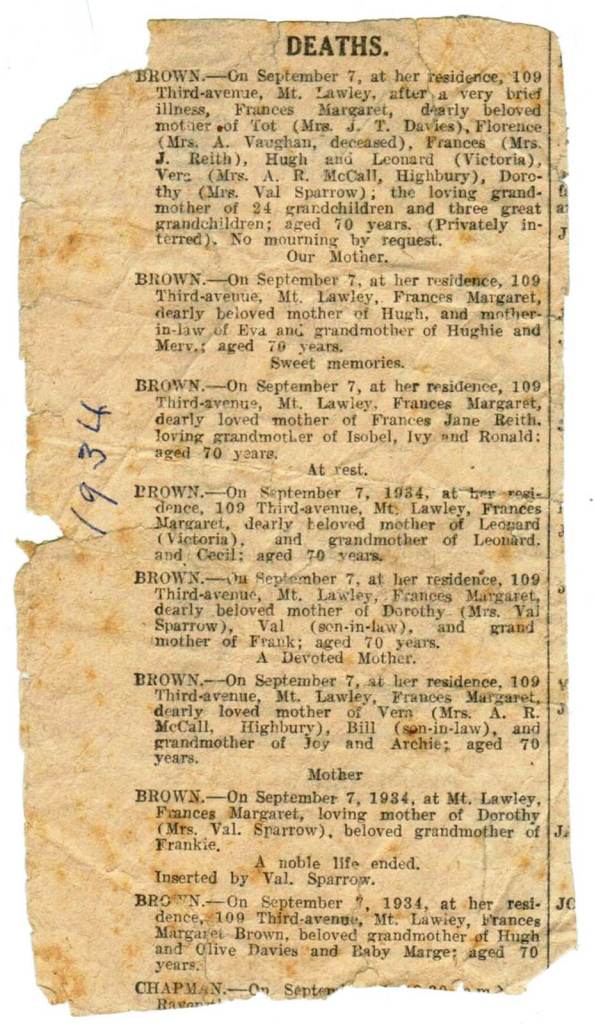 DEATHS.
BROWN.—On September 7, at her residence, 109
Third-avenue, Mt. Lawley, after a very brief
illness, Frances Margaret, dearly beloved
mother of Tot (Mrs. J. T. Davies), Florence
(Mrs. A. Vaughan, deceased), Frances (Mrs.
J. Reith), Hugh and Leonard (Victoria),
Vera (Mrs. A. R. McCall, Highbury), Doro-
thy (Mrs. Val Sparrow); the loving grand-
mother of 24 grandchildren and three great
grandchildren; aged 70 years. (Privately in-
terred). No mourning by request.
Our Mother.
BROWN.—On September 7, at her residence, 109
Third-avenue, Mt. Lawley, Frances Margaret,
dearly beloved mother of Hugh, and mother-
in-law of Eva and grandmother of Hughie and
Merv.; aged 70 years.
Sweet memories.
BROWN.—On September 7, at her residence, 109
Third-avenue, Mt. Lawley, Frances Margaret,
dearly loved mother of Frances Jane Reith,
loving grandmother of Isobel, Ivy and Ronald;
aged 70 years.
At rest.
BROWN.—On September 7, 1934, at her resi-
dence, 109 Third-avenue, Mt. Lawley, Frances
Margaret, dearly beloved mother of Leonard
(Victoria), and grandmother of Leonard,
and Cecil; aged 70 years.
BROWN.—On September 7, at her residence, 109
Third-avenue, Mt. Lawley, Frances Margaret,
dearly beloved mother of Dorothy (Mrs. Val
Sparrow), Val (son-in-law), and grand
mother of Frank; aged 70 years.
A Devoted Mother.
BROWN.—On September 7, at her residence, 109
Third-avenue, Mt. Lawley, Frances Margaret,
dearly loved mother of Vera (Mrs. A. R.
McCall, Highbury), Bill (son-in-law), and
grandmother of Joy and Archie; aged 70
years.
Mother
BROWN.—On September 7, 1934, at Mt. Lawley,
Frances Margaret, loving mother of Dorothy
(Mrs. Val. Sparrow), beloved grandmother of
Frankie.
A noble life ended.
Inserted by Val. Sparrow.
BROWN.—On September 7, 1934, at her resi-
dence, 109 Third-avenue, Mt. Lawley, Frances
Margaret Brown, beloved grandmother of Hugh
and Olive Davies and Baby Marge; aged 70
years.
CHAPMAN.—On
1934